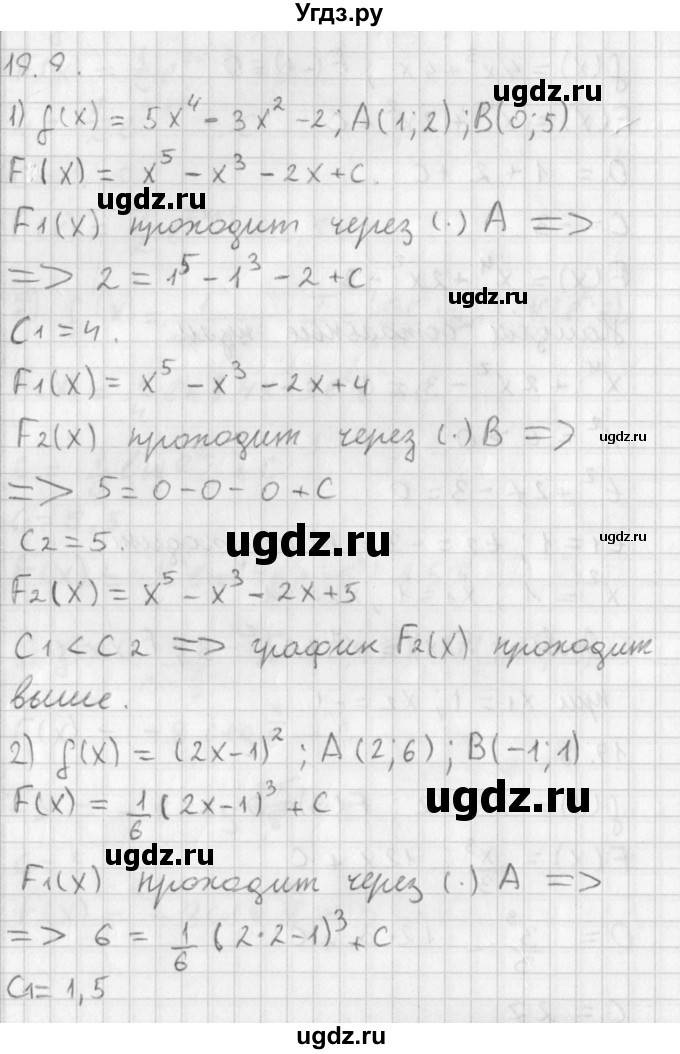 Угдз.ру
19.9.
1) f(x) = 5x⁴ - 3x² - 2; A(1;2); B(0;5)
F(x) = x⁵ - x³ - 2x + C.
ugdz.ru
F1(x) проходит через (·) A =>
=> 2 = 1⁵ - 1³ - 2 + C
ugdz.ru
C1 = 4.
F1(x) = x⁵ - x³ - 2x + 4
F2(x) проходит через (·) B =>
ugdz.ru
=> 5 = 0 - 0 - 0 + C
C2 = 5.
ugdz.ru
ugdz.ru
F2(x) = x⁵ - x³ - 2x + 5
C1 < C2 => график F2(x) проходит
выше.
2) f(x) = (2x-1)²; A(2;6); B(-1;1)
ugdz.ru
F(x) = 1/6 (2x-1)³ + C
ugdz.ru
F1(x) проходит через (·) A =>
=> 6 = 1/6 (2·2-1)³ + C
C1 = 1,5
ugdz.ru